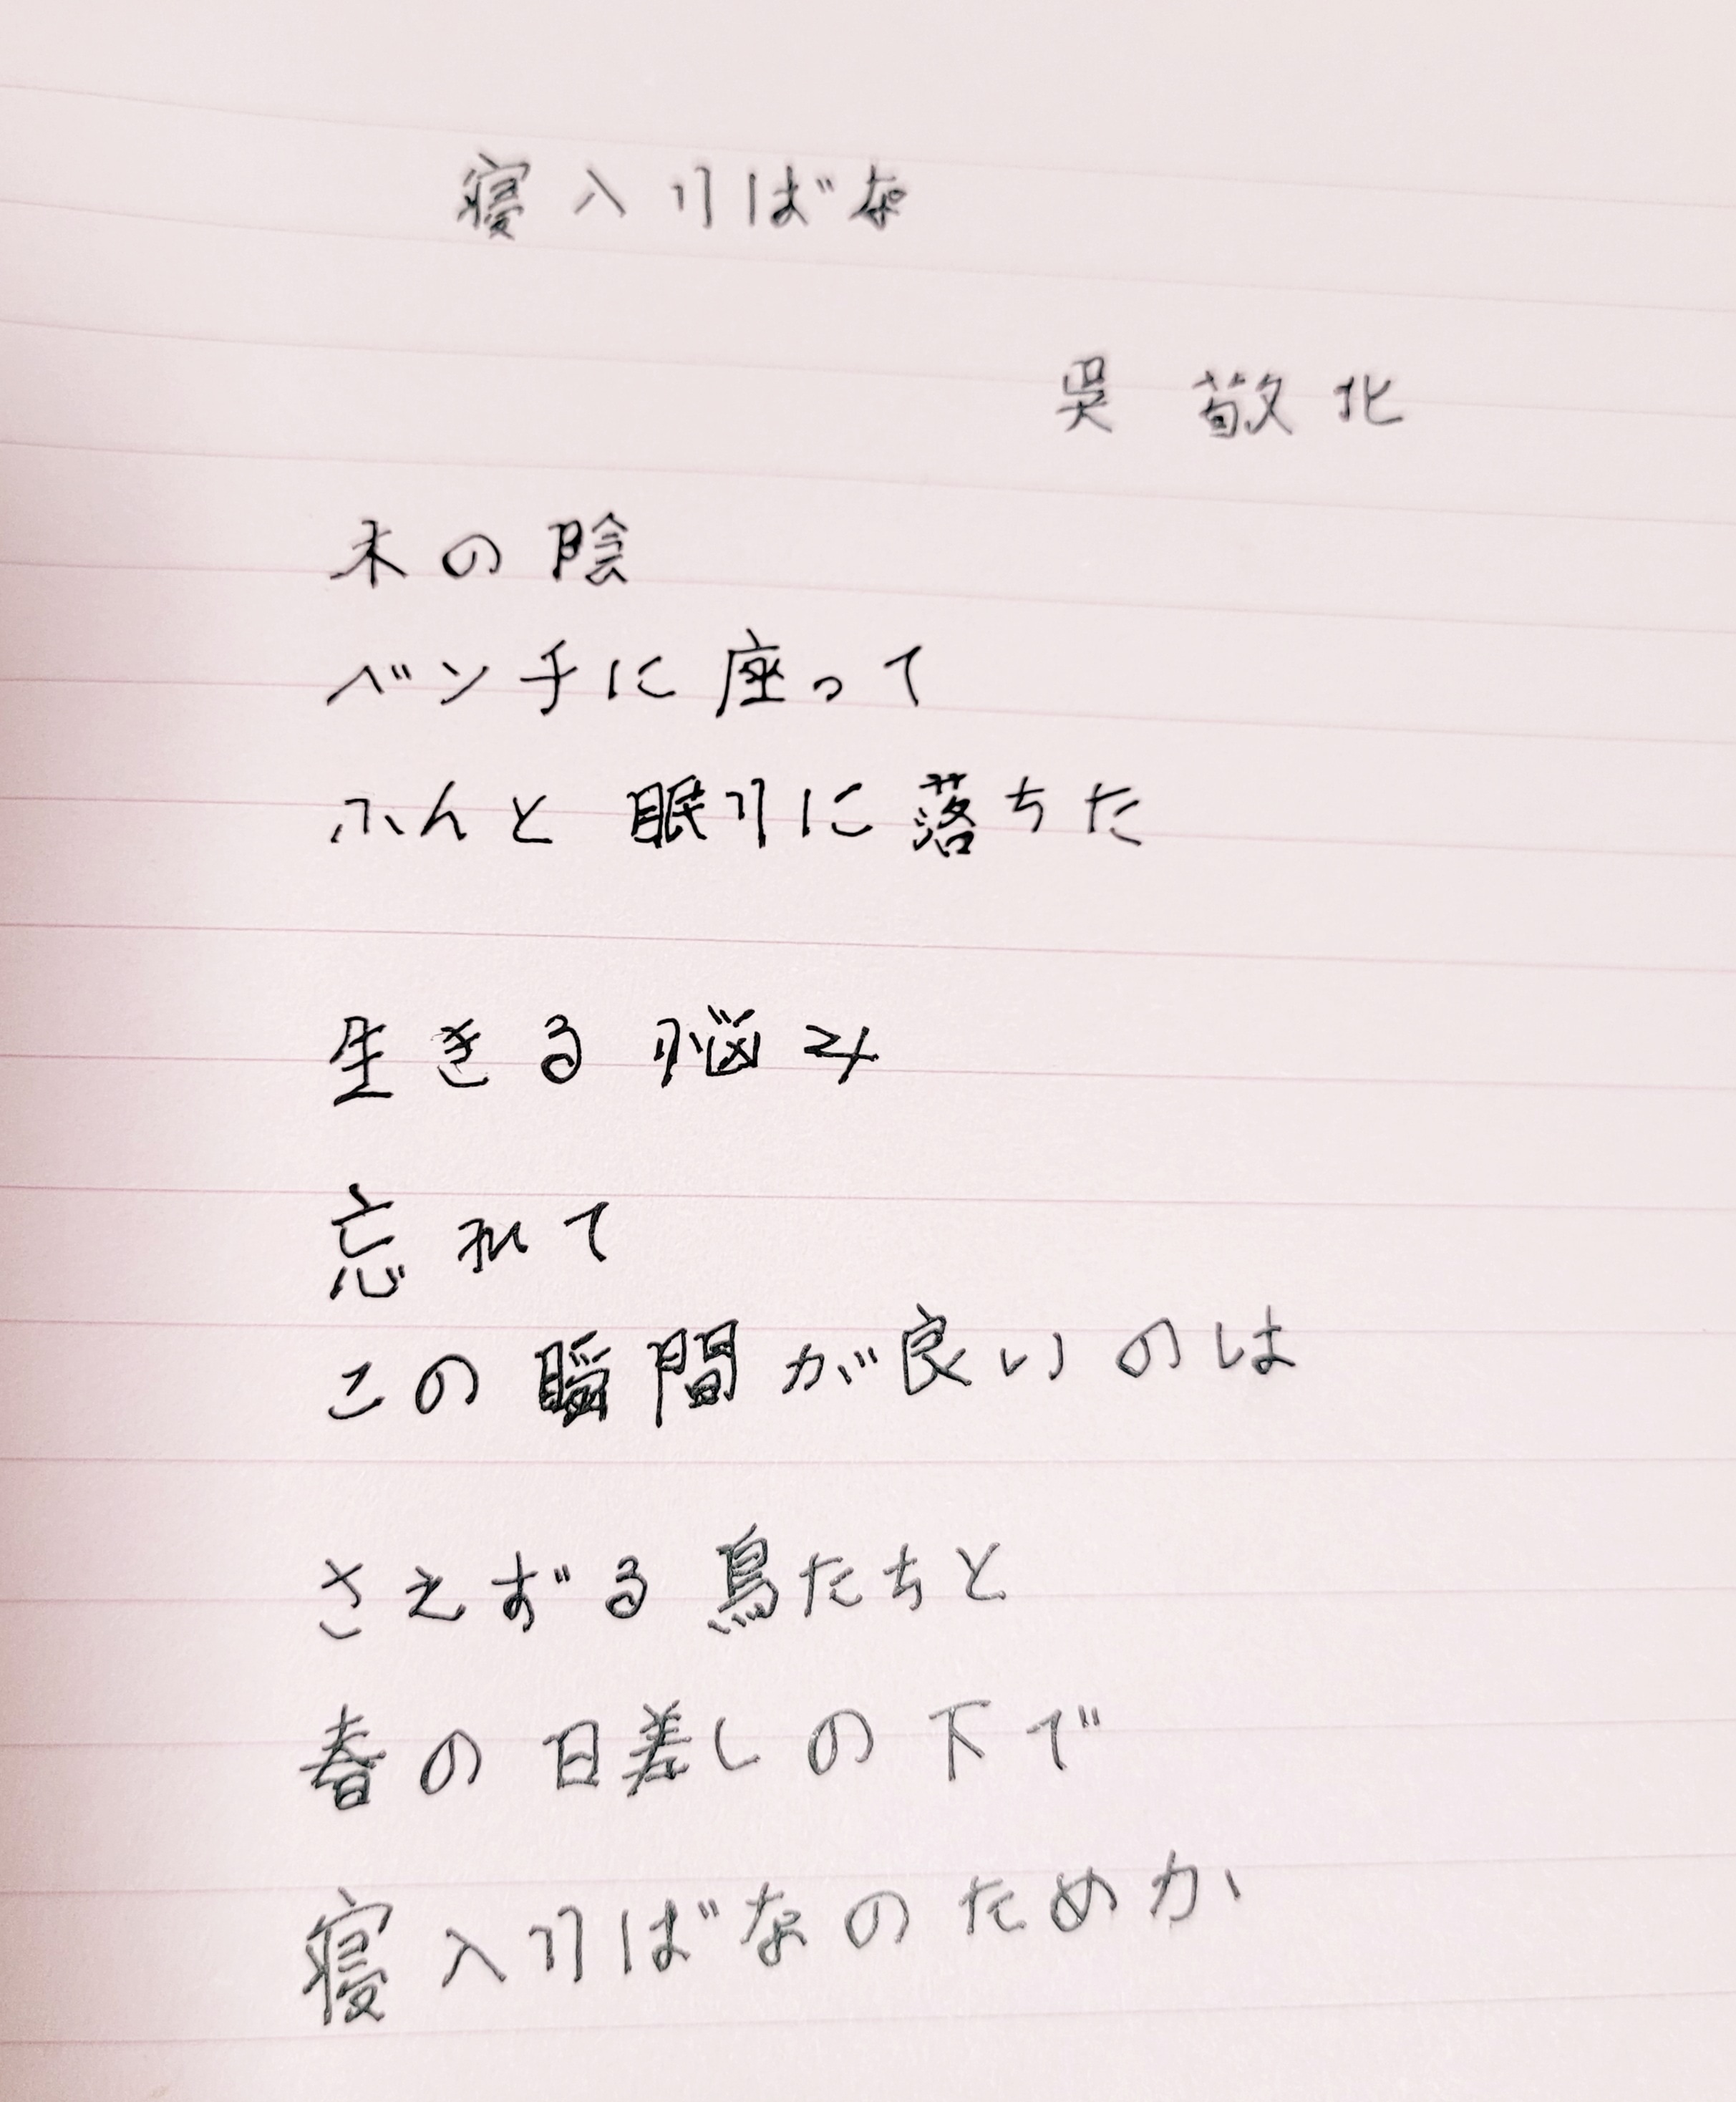 寝入りばな
呉 敬北
木の陰
ベンチに座って
ふんと 眠りに落ちた
生きる悩み
忘れて
この瞬間が良いのは
さえずる鳥たちと
春の日差しの下で
寝入りばなのためか